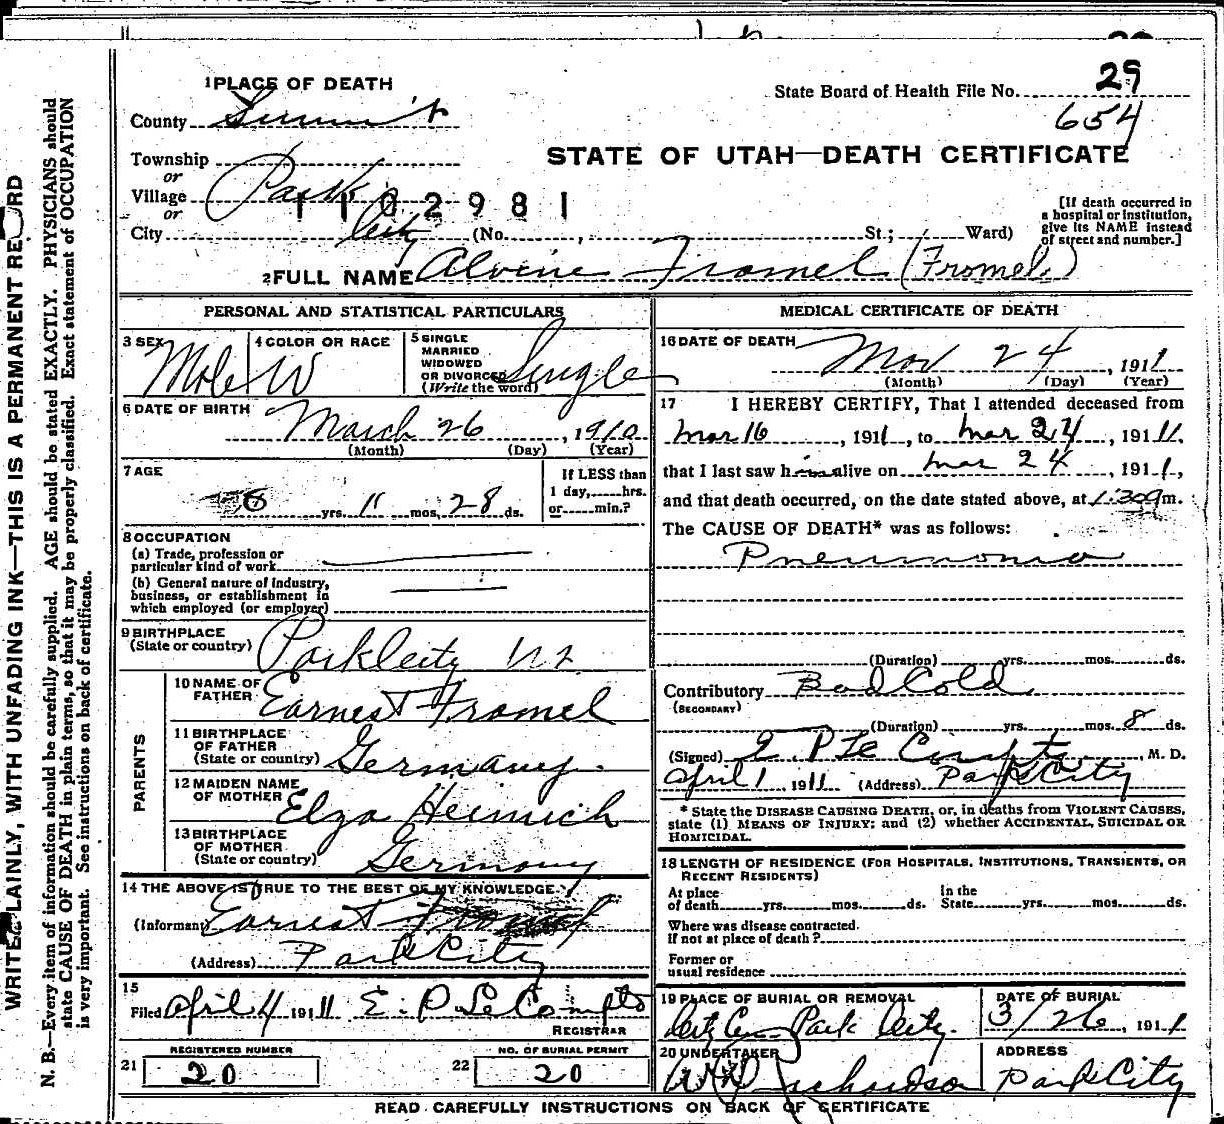 1 PLACE OF DEATH
State Board of Health File No. 29
654
County Summit
STATE OF UTAH—DEATH CERTIFICATE
Township
or
Village Park
or
1102981
City City (No. , St.; Ward)
[If death occurred in
a hospital or institution,
give its NAME instead
of street and number.]
2 FULL NAME Alvine Fromel (Fromel.)
PERSONAL AND STATISTICAL PARTICULARS
3 SEX Male
4 COLOR OR RACE W
5 SINGLE
MARRIED
WIDOWED
OR DIVORCED
(Write the word) Single
6 DATE OF BIRTH
March 26, 1910
(Month) (Day) (Year)
7 AGE
0 yrs. 11 mos. 28 ds.
If LESS than
1 day, hrs.
or min.?
8 OCCUPATION
(a) Trade, profession or
particular kind of work
(b) General nature of industry,
business, or establishment in
which employed (or employer)
9 BIRTHPLACE
(State or country) Park City
PARENTS
10 NAME OF
FATHER Earnest Fromel
11 BIRTHPLACE
OF FATHER
(State or country) Germany.
12 MAIDEN NAME
OF MOTHER Elza Heinrich
13 BIRTHPLACE
OF MOTHER
(State or country) Germany
14 THE ABOVE IS TRUE TO THE BEST OF MY KNOWLEDGE.
(Informant) Earnest Fromel
(Address) Park City
15
Filed April 4 1911 E. P. LeCompte
REGISTRAR
REGISTERED NUMBER
21 20
NO. OF BURIAL PERMIT
22 20
MEDICAL CERTIFICATE OF DEATH
16 DATE OF DEATH
Mar 24, 1911
(Month) (Day) (Year)
17 I HEREBY CERTIFY, That I attended deceased from
Mar 16, 1911, to Mar 24, 1911,
that I last saw him alive on Mar 24, 1911,
and that death occurred, on the date stated above, at 1:30 a m.
The CAUSE OF DEATH* was as follows:
Pneumonia
(Duration) yrs. mos. ds.
Contributory Bad Cold
(SECONDARY)
(Duration) yrs. mos. 8 ds.
(Signed) E P Le Compte, M. D.
April 1 1911 (Address) Park City
* State the DISEASE CAUSING DEATH, or, in deaths from VIOLENT CAUSES,
state (1) MEANS OF INJURY; and (2) whether ACCIDENTAL, SUICIDAL OR
HOMICIDAL.
18 LENGTH OF RESIDENCE (FOR HOSPITALS, INSTITUTIONS, TRANSIENTS, OR
RECENT RESIDENTS)
At place
of death yrs. mos. ds.
In the
State yrs. mos. ds.
Where was disease contracted.
if not at place of death?
Former or
usual residence
19 PLACE OF BURIAL OR REMOVAL
City Cem Park City.
DATE OF BURIAL
3/26, 1911
20 UNDERTAKER
Richardson
ADDRESS
Park City
READ CAREFULLY INSTRUCTIONS ON BACK OF CERTIFICATE
WRITE PLAINLY, WITH UNFADING INK—THIS IS A PERMANENT RECORD
N. B.—Every item of information should be carefully supplied. AGE should be stated EXACTLY. PHYSICIANS should
state CAUSE OF DEATH in plain terms, so that it may be properly classified. Exact statement of OCCUPATION
is very important. See instructions on back of certificate.